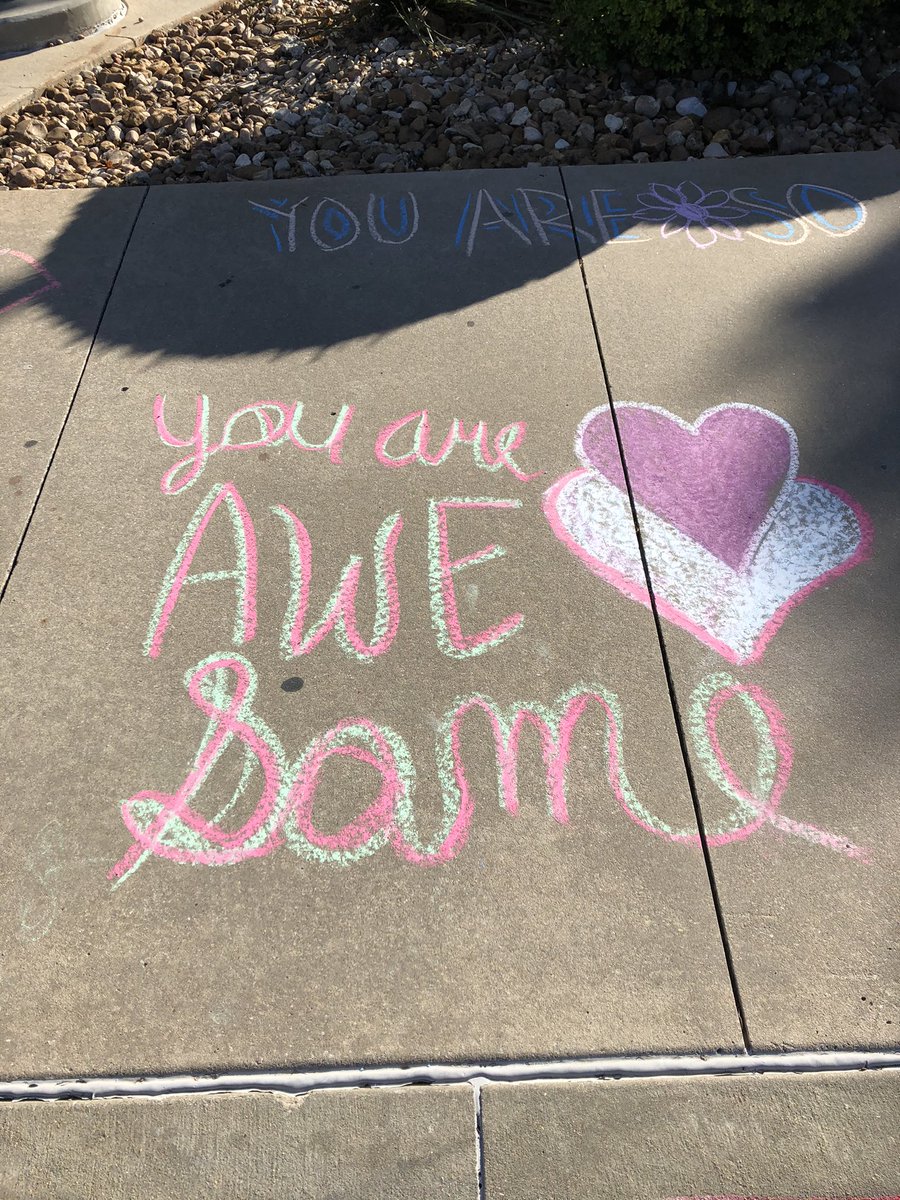 YOU ARE SO
you are
AWE
Some